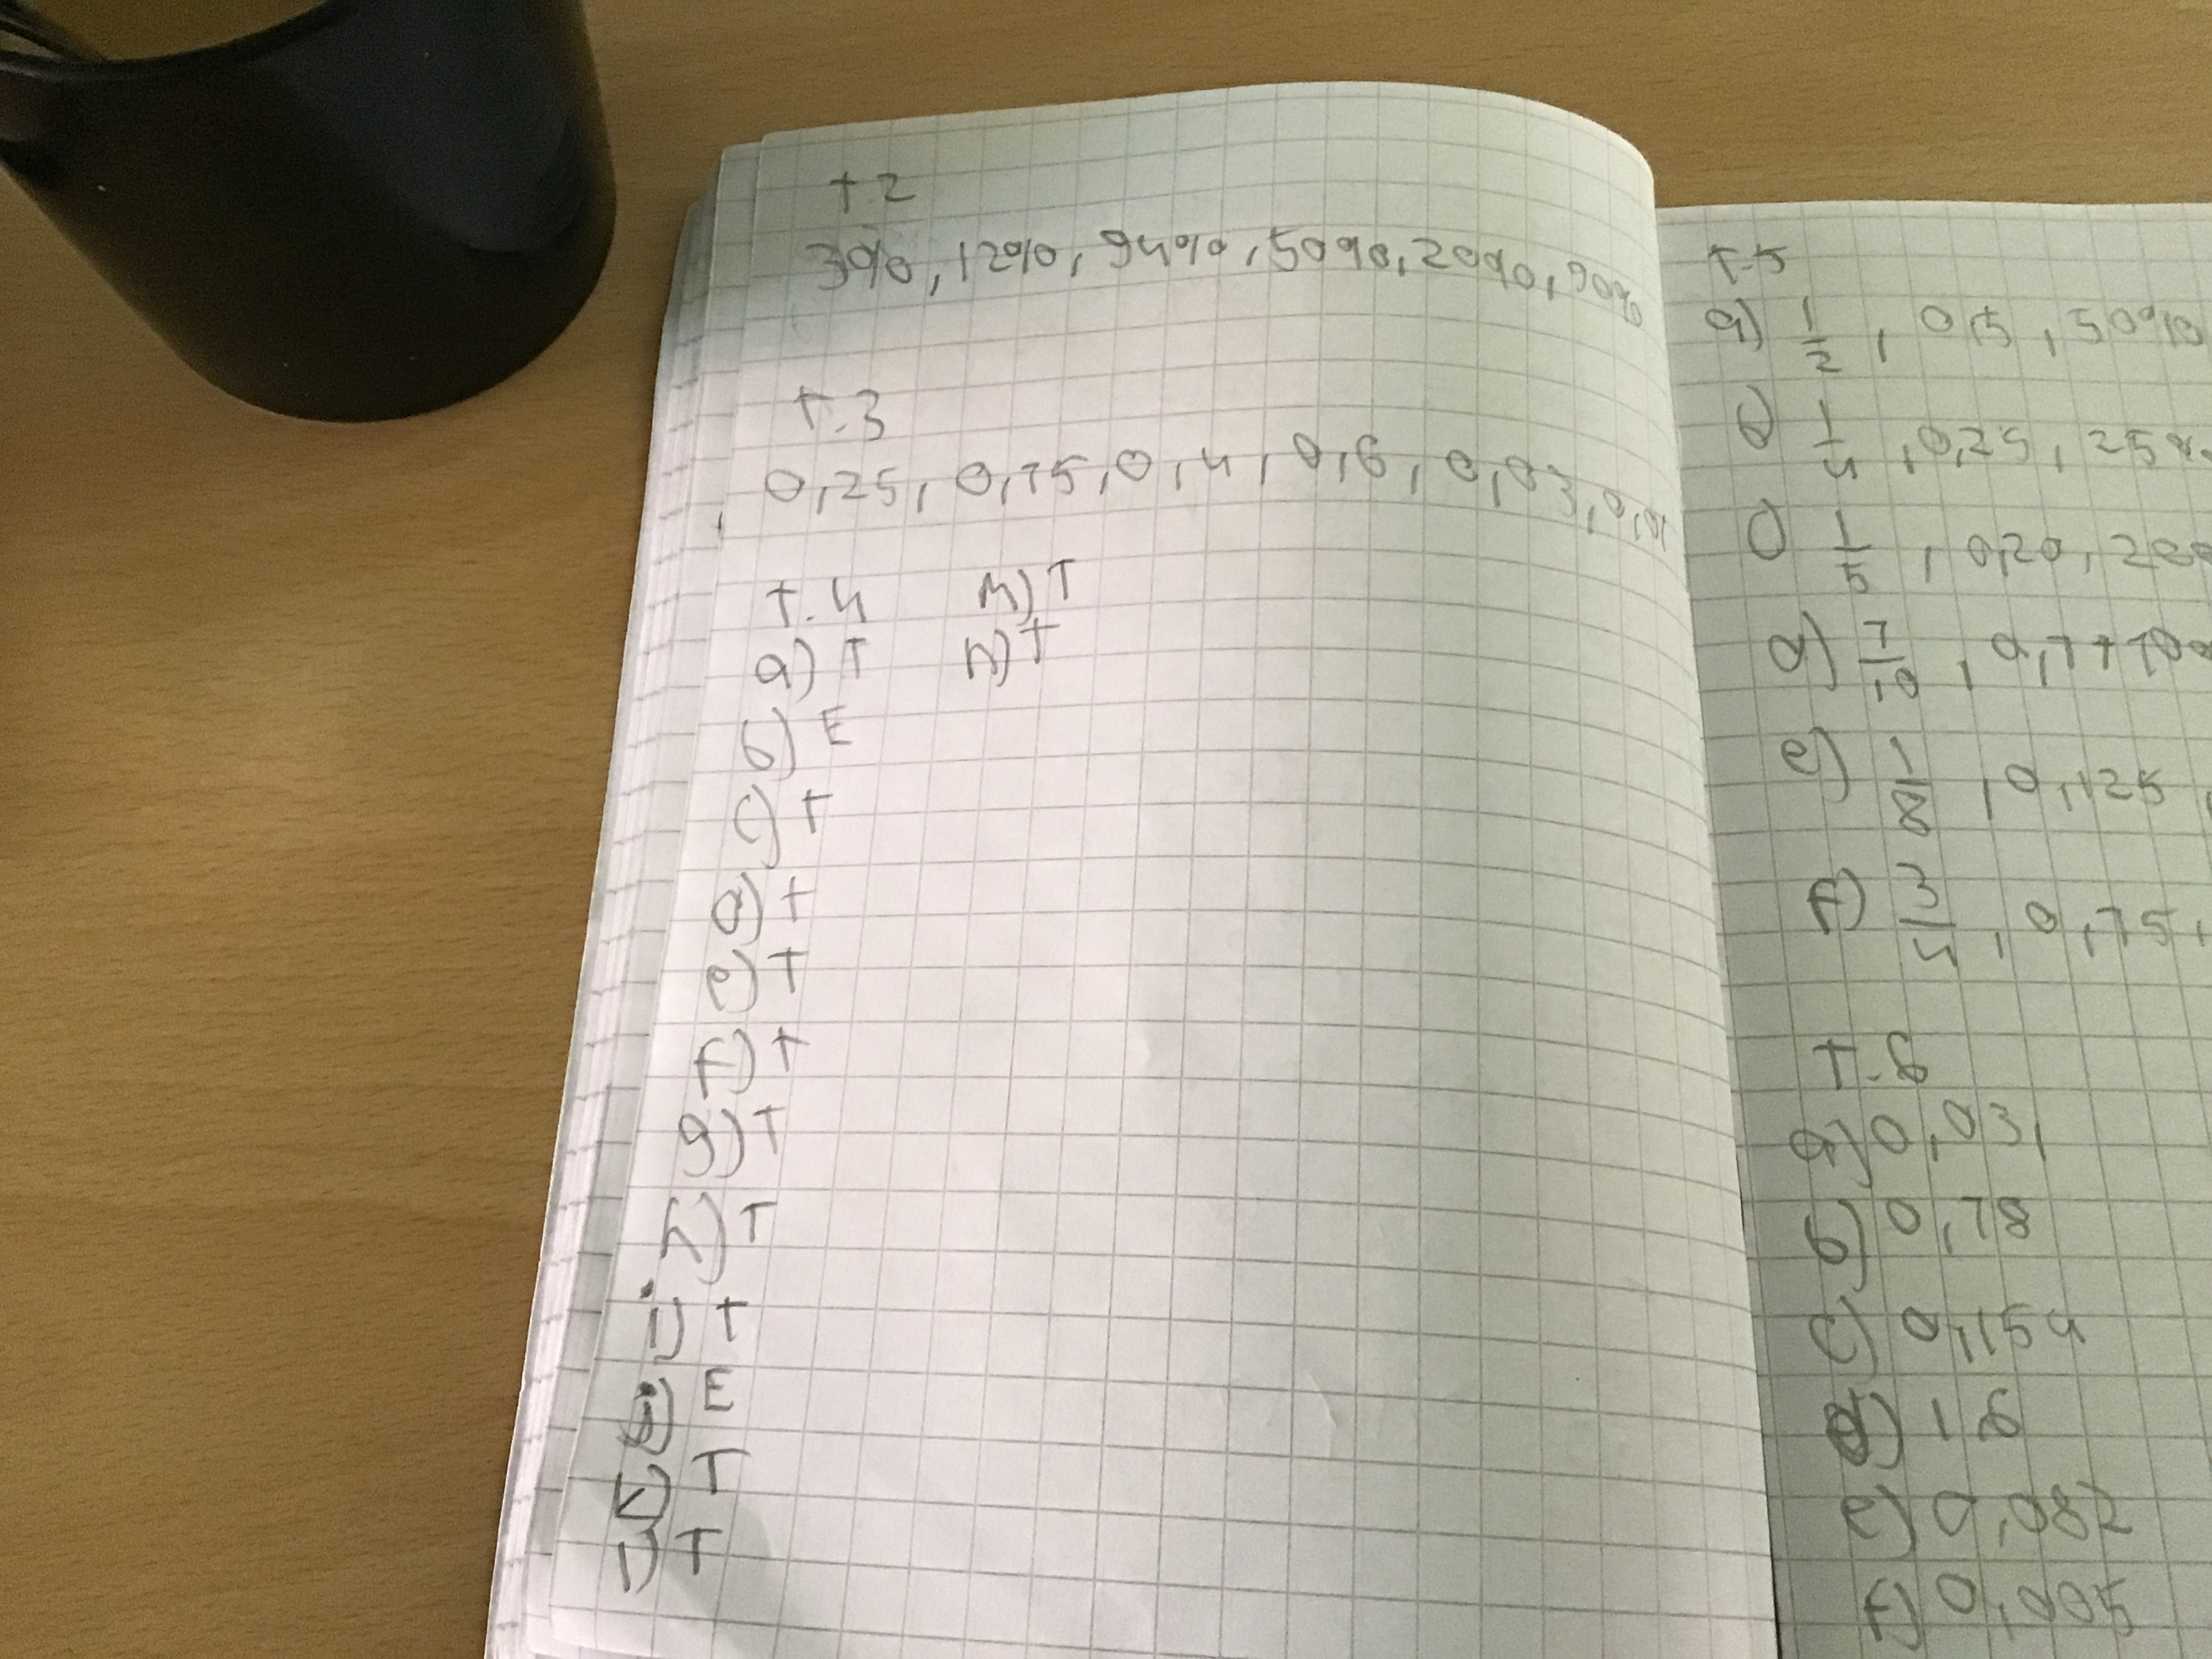 T.2
3%, 12%, 94%, 50%, 20%, 90%
T.3
0,25, 0,75, 0,4, 0,6, 0,03, 0,01
T.4
a) T
b) E
c) T
d) T
e) T
f) T
g) T
h) T
i) T
j) E
k) T
l) T
m) T
n) T
T.5
a) 1/2, 0,5, 50%
b) 1/4, 0,25, 25%
c) 1/5, 0,20, 20
d) 7/10, 0,7, 70
e) 1/8, 0,125,
f) 3/4, 0,75,
T.8
a) 0,03,
b) 0,78
c) 0,154
d) 1,6
e) 0,082
f) 0,005